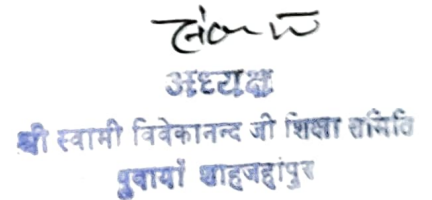 अध्यक्ष
श्री स्वामी विवेकानन्द जी शिक्षा समिति
पुवायाँ शाहजहांपुर